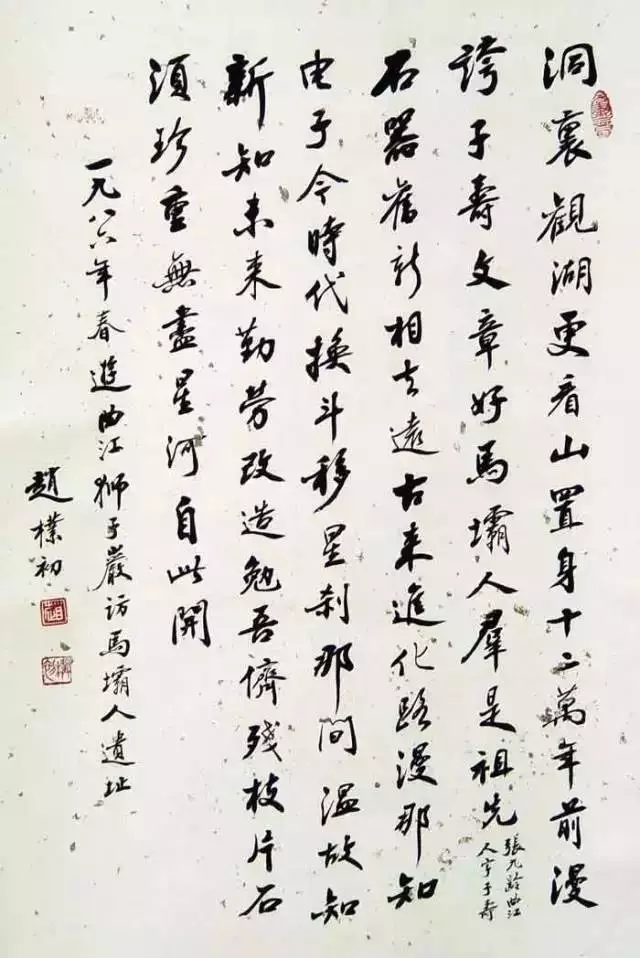 洞裏觀湖更看山置身十二萬年前漫
誇子壽文章好馬壩人羣是祖先
張九齡曲江
人字子壽
石器舊新相去遠古来進化路漫那知
电子今時代換斗移星刹那間温故知
新知未来勤勞改造勉吾儕殘枝片石
須珍重無盡星河自此開
一九八六年春遊曲江狮子巖訪馬壩人遺址
趙樸初
趙
樸初